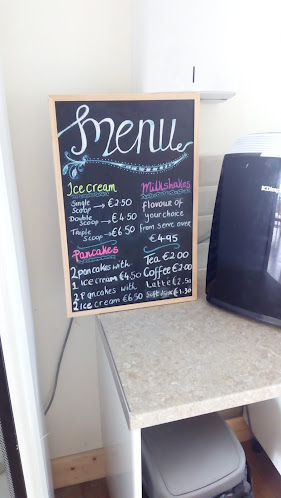 Menu
Ice cream
Single Scoop → €2.50
Double Scoop → €4.50
Triple Scoop → €6.50
Pancakes
2 pancakes with
1 Ice cream €4.50
2 Pancakes with
2 Ice cream €6.50
Milkshakes
flavour of
your choice
from serve over
€4.95
Tea €2.00
Coffee €2.00
Latte €2.50